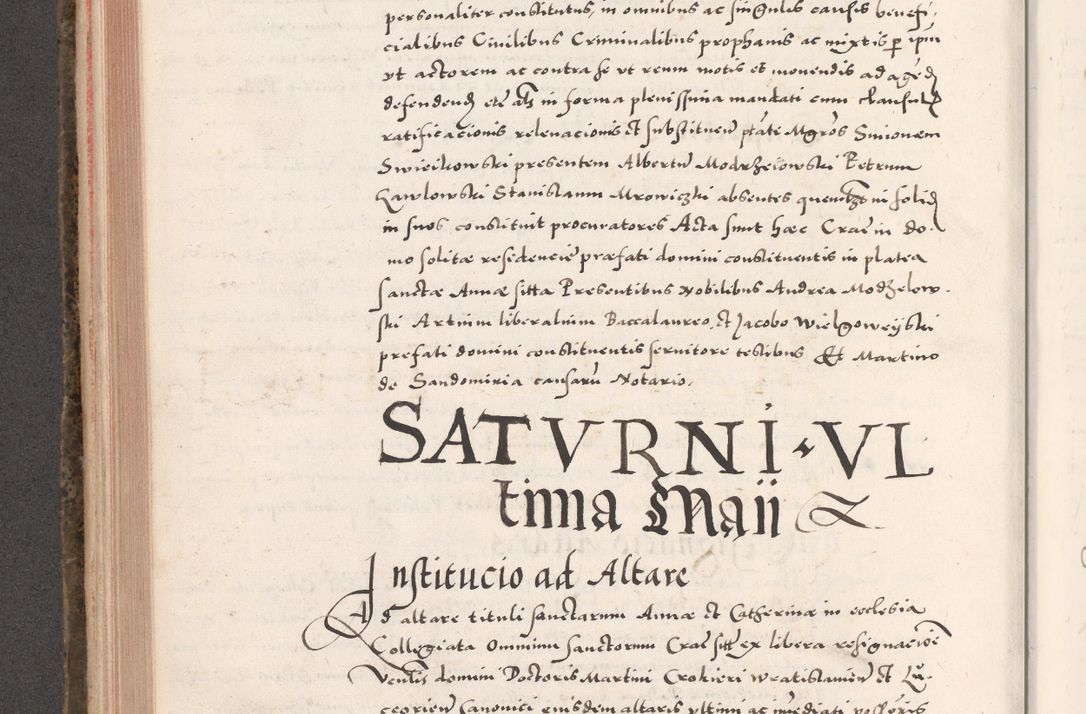 personaliter constitutus, in omnibus ac singulis causis benefi-
cialibus Civilibus Criminalibus prophanis ac mixtis per ipm
vt actorem ac contra se vt reum motis et movendis ad agēd
defendend etc als in forma plenissima mandati cum clausul
ratificacionis relevacionis et substituen ptāte Mgros Simonem
Swieikowski presentem Albertū Modrzeiowski Petrum
Kawlowski Stanislaum Mrowiczki absentes quemlzt in solid
in suos constituit procuratores Acta sunt haec Craē in do-
mo solitae residencie praefati domini constituentis in platea
Sanctae Annae sitta Presentibus Nobilibus Andrea Modzelow-
ski Artium liberalium Baccalaureo, et Jacobo Wielgoweyski
prefati domini constituentis servitore testibus Et Martino
de Sandomiria causarū Notario,
SATVRNI VL
tima Maii
Institucio ad Altare
Ad altare tituli sanctarum Annae et Catherinae in ecclesia
Collegiata Omnium sanctorum Craē sitt ex libera resignacōe
Venlis domini Doctoris Martini Crokieri Wratislavien et Lu-
ceorien Canonici eiusdem altaris vltimi ac imediati possoris